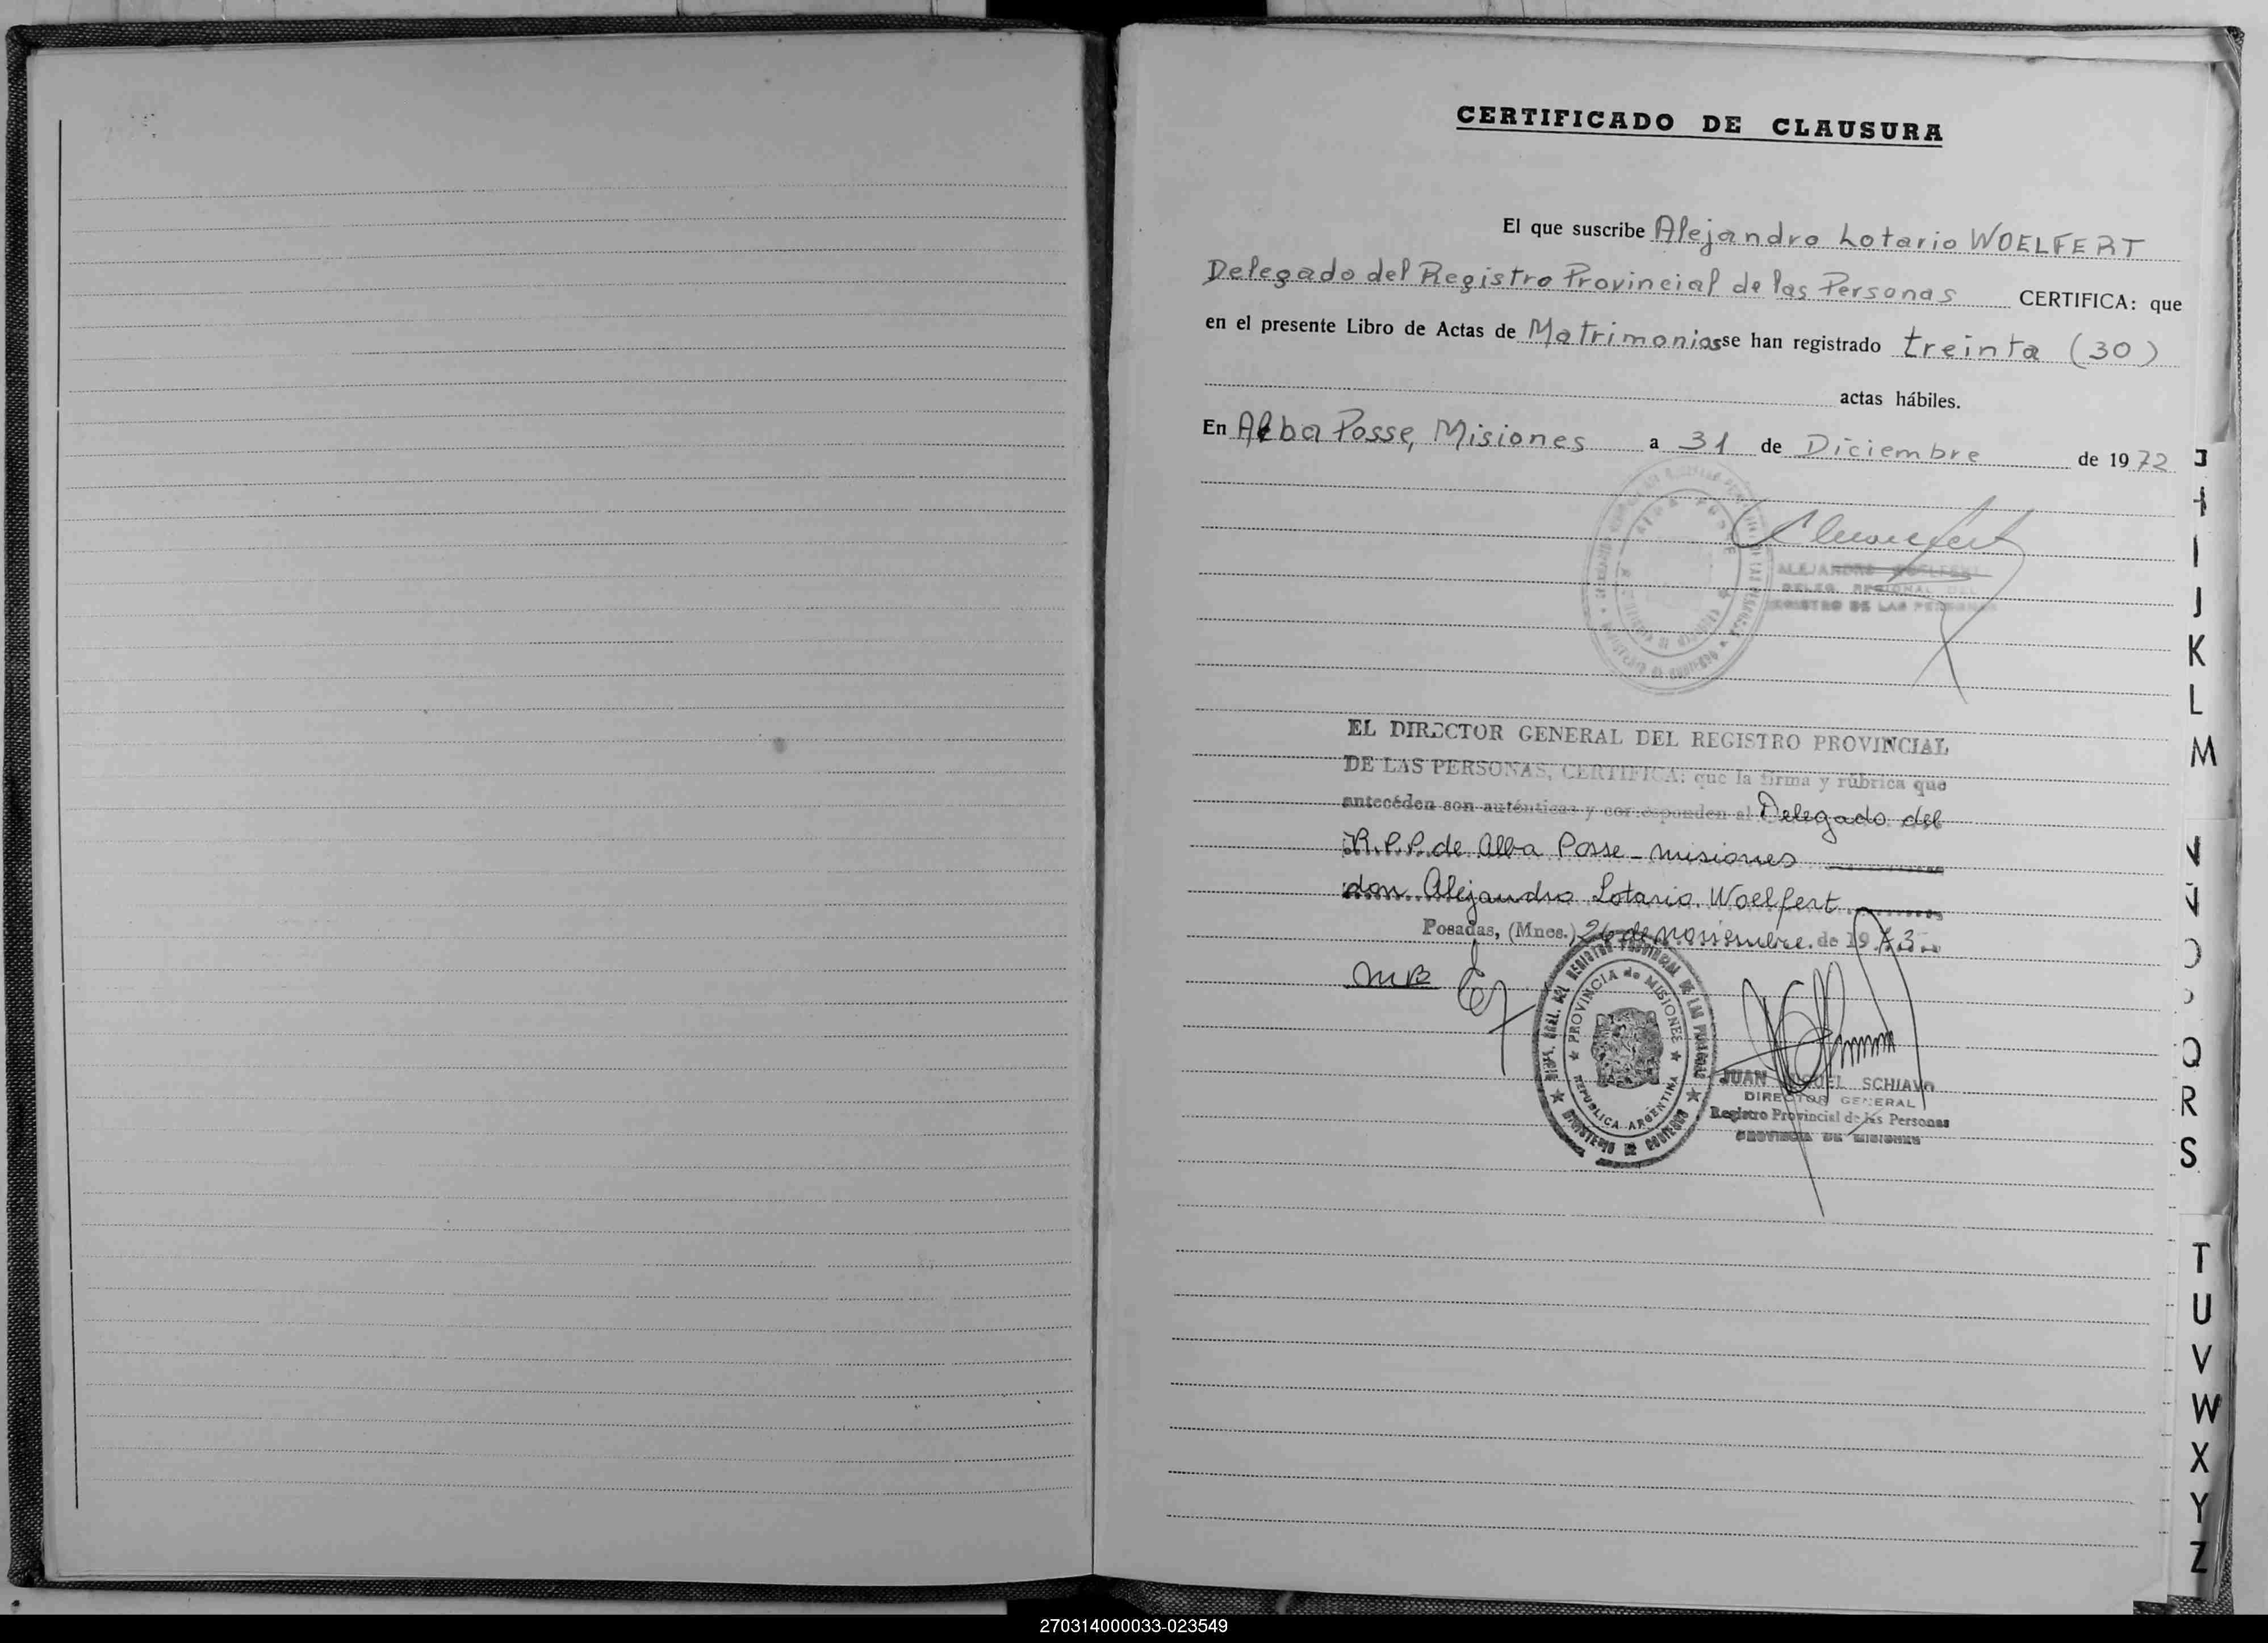 CERTIFICADO DE CLAUSURA
El que suscribe Alejandro Lotario WOELFERT
Delegado del Registro Provincial de las Personas CERTIFICA: que
en el presente Libro de Actas de Matrimonios se han registrado treinta (30)
actas hábiles.
En Alba Posse, Misiones a 31 de Diciembre de 1972
ALEJANDRO WOELFERT
DELEG. REGIONAL DEL
REGISTRO DE LAS PERSONAS
EL DIRECTOR GENERAL DEL REGISTRO PROVINCIAL
DE LAS PERSONAS, CERTIFICA: que la firma y rúbrica que
anteceden son auténticas y corresponden al Delegado del
R.P.P. de Alba Posse - misiones
don Alejandro Lotario Woelfert
Posadas, (Mnes.) 26 de noviembre de 1973
PROVINCIA de MISIONES
REPUBLICA ARGENTINA
MINISTERIO DE GOBIERNO
JUAN MIGUEL SCHIAVO
DIRECTOR GENERAL
Registro Provincial de las Personas
PROVINCIA DE MISIONES
I
J
K
L
M
O
Q
R
S
T
U
V
W
X
Y
Z
270314000033-023549